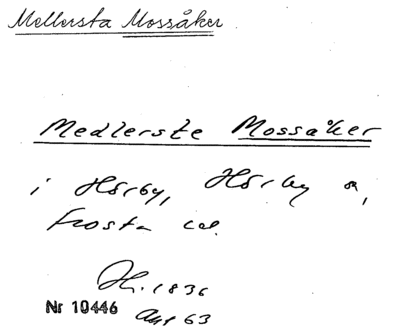 Mellersta Mossåker
Medlerste Mossåker
i Hörby, Hörby s,
Frosta
1836
Nr 10446
63